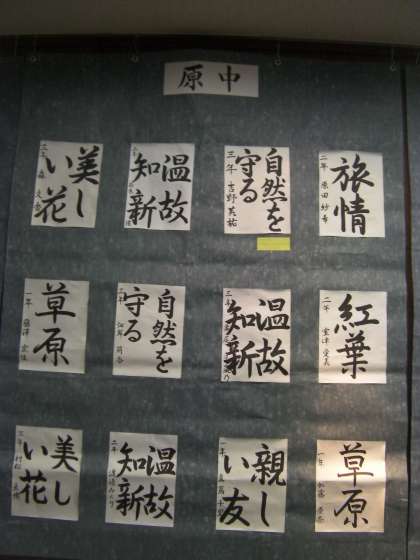 原中
旅情
二年
自然を
守る
三年 吉野英祐
温故
知新
美し
い花
三年
紅葉
二年
温故
知新
三年
自然を
守る
草原
一年
草原
一年
親し
い友
一年
温故
知新
二年
美し
い花
三年 村松